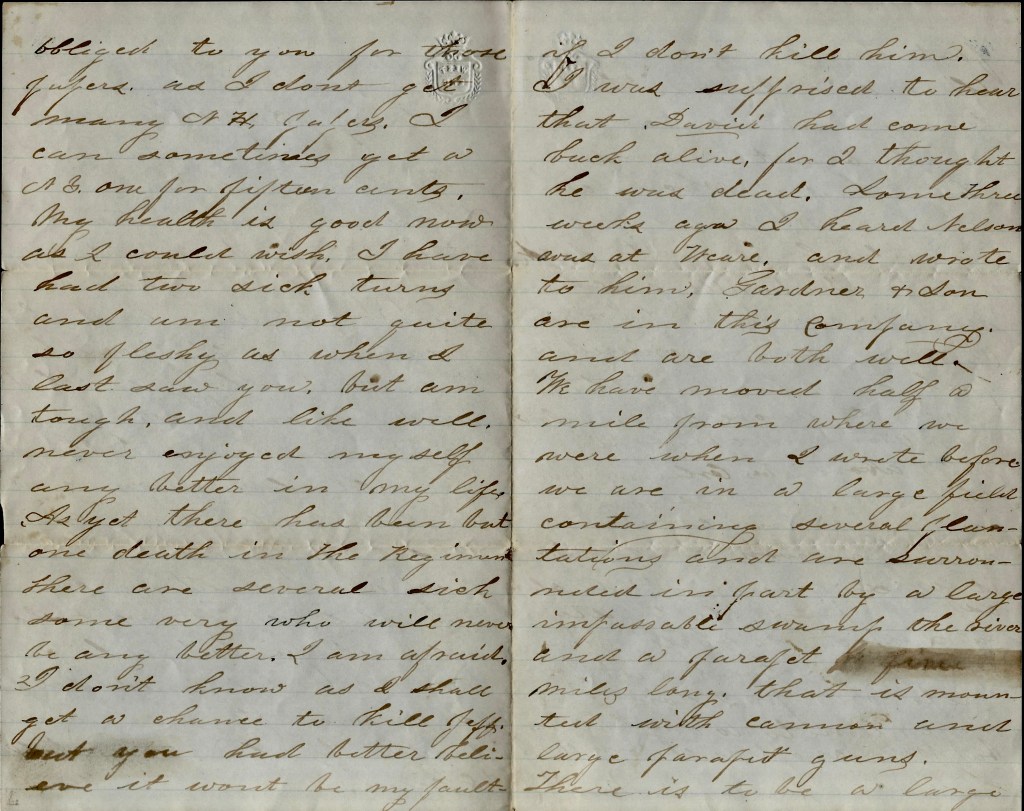 obliged to you for those
papers. as I dont get
many N H. papers. I
can sometimes get a
N Y. one for fifteen cents.
My health is good now
as I could wish. I have
had two sick turns
and am not quite
so fleshy as when I
last saw you. but am
tough, and like well.
never enjoyed myself
any better in my life.
As yet there has been but
one death in the Regiment
there are several sick
some very who will never
be any better. I am afraid.
I don't know as I shall
get a chance to kill Jeff.
but you had better beli-
eve it wont be my fault
if I don't kill him.
I was supprised to hear
that David had come
back alive, for I thought
he was dead. Some three
weeks ago I heard Nelson
was at Weare, and wrote
to him. Gardner & Son
are in this company.
and are both well.
We have moved half a
mile from where we
were when I wrote before
we are in a large field
containing several plan-
tations and are surrou-
nded in part by a large
impassable swamp the river
and a parapet
miles long. that is moun-
ted with cannon and
large parapet guns.
There is to be a large